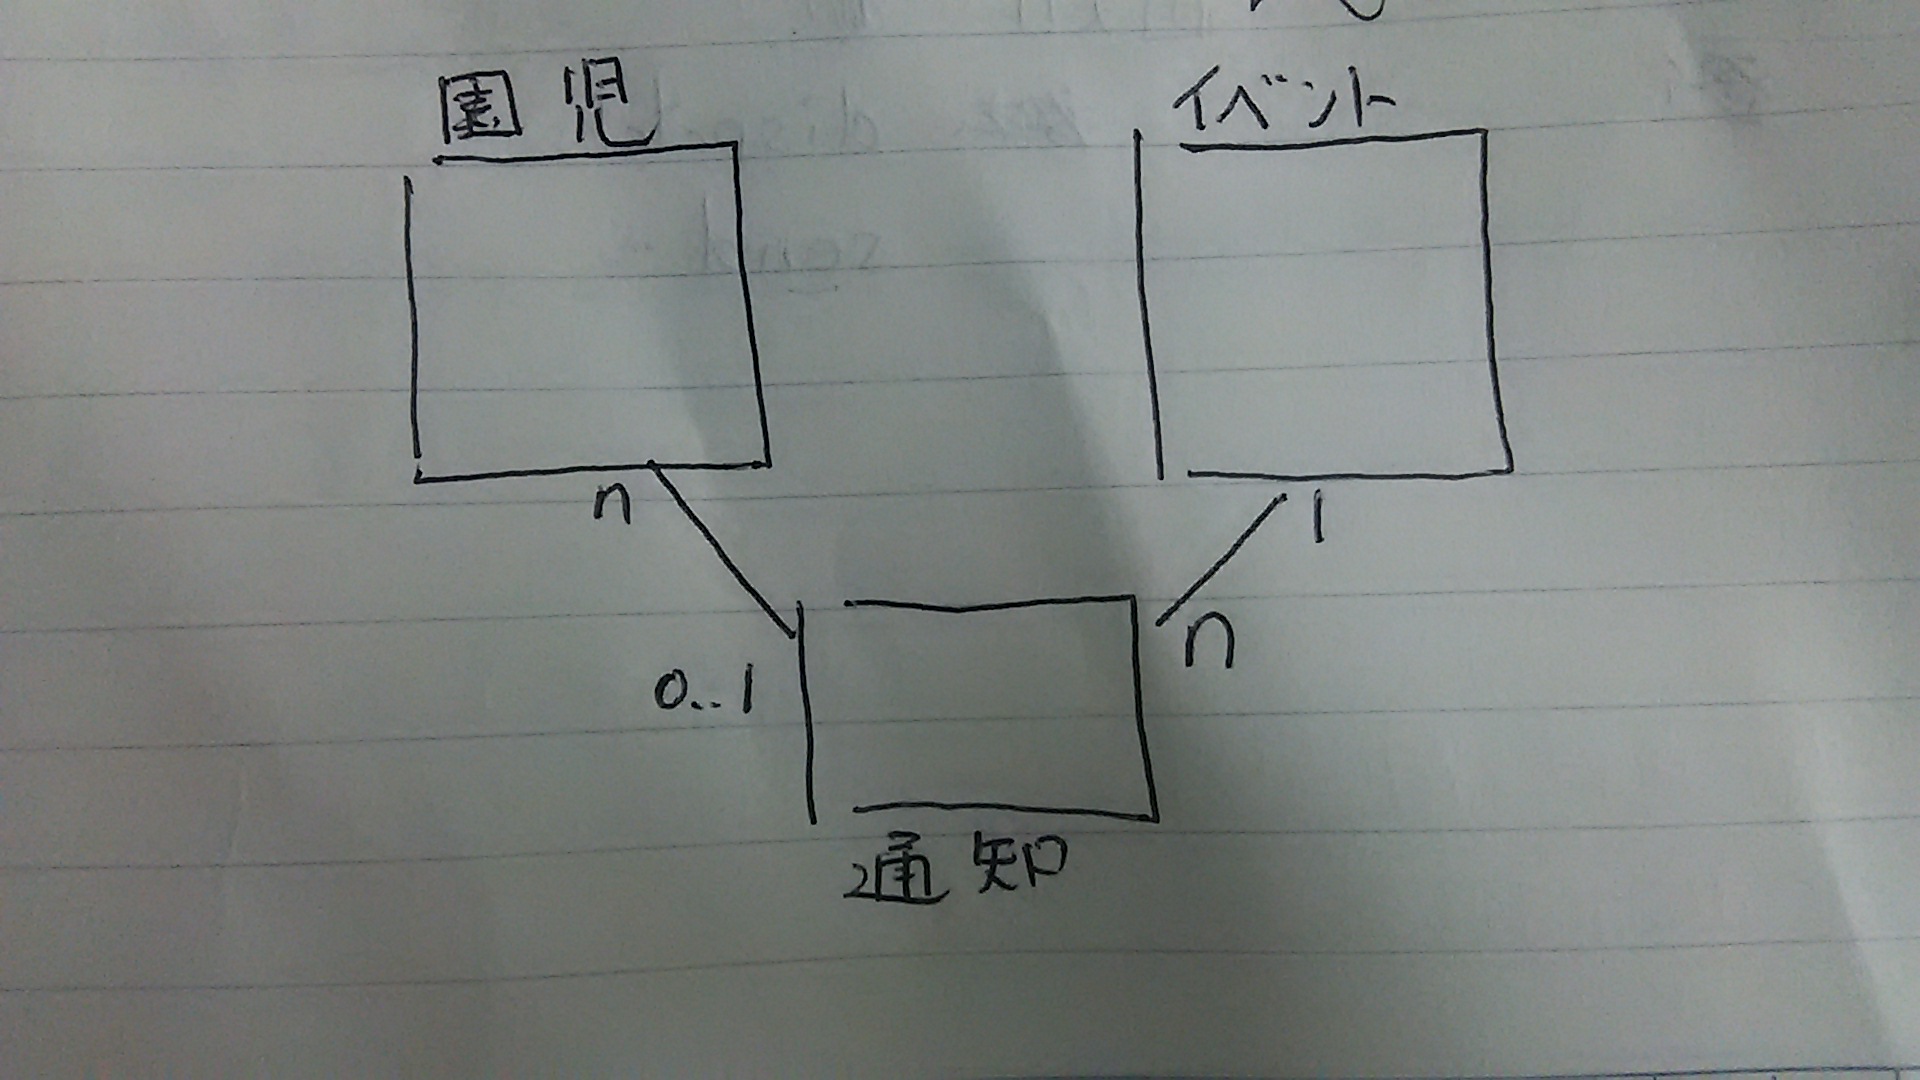 園児
イベント
n
1
n
0..1
通知